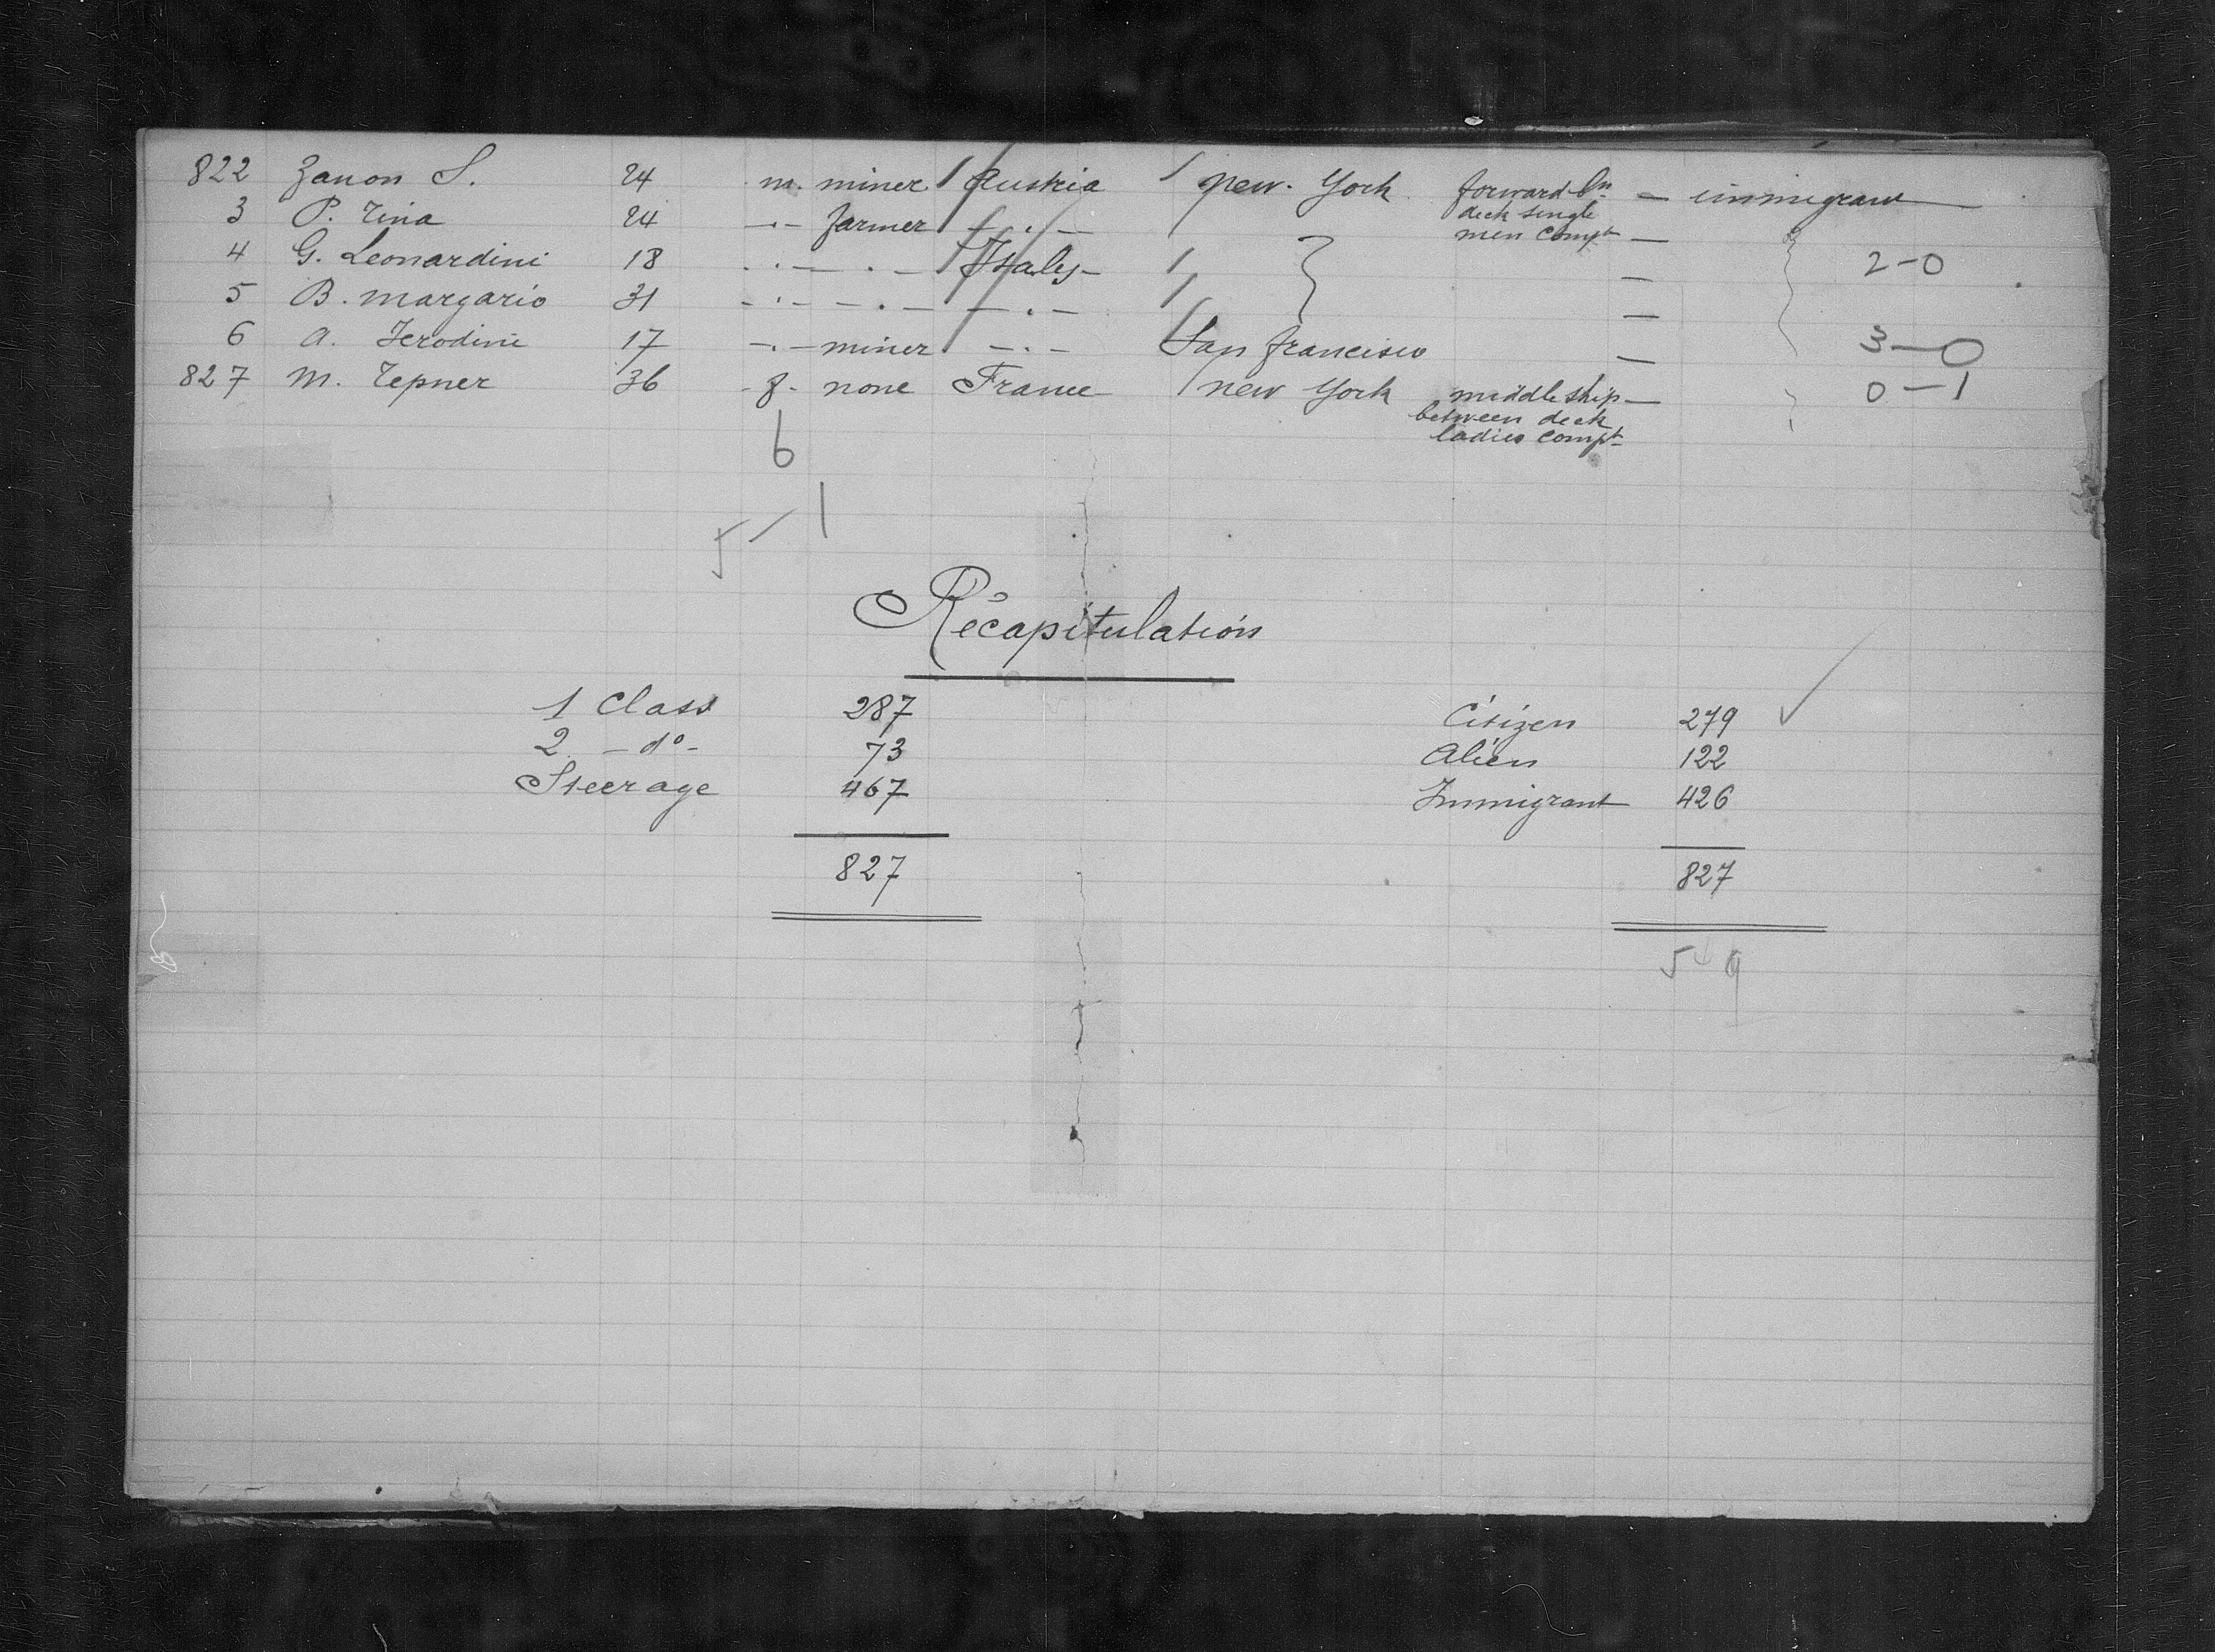 822 Zanon S. 24 m. miner Austria New-York forward bn deck single men compt — immigrant
3 P. Tina 24 -.- farmer -.- —
4 G. Leonardini 18 -.- -.- Italy — 2-0
5 B. Margario 31 -.- -.- -.- —
6 A. Ferodini 17 -.- miner -.- San Francisco — 3-0
827 M. Tepner 36 f. none France New York middle ship — between deck ladies compt 0-1
6
5 / 1
Récapitulation
1 Class 287 Citizen 279
2 - do - 73 Alien 122
Steerage 467 Immigrant 426
827 827